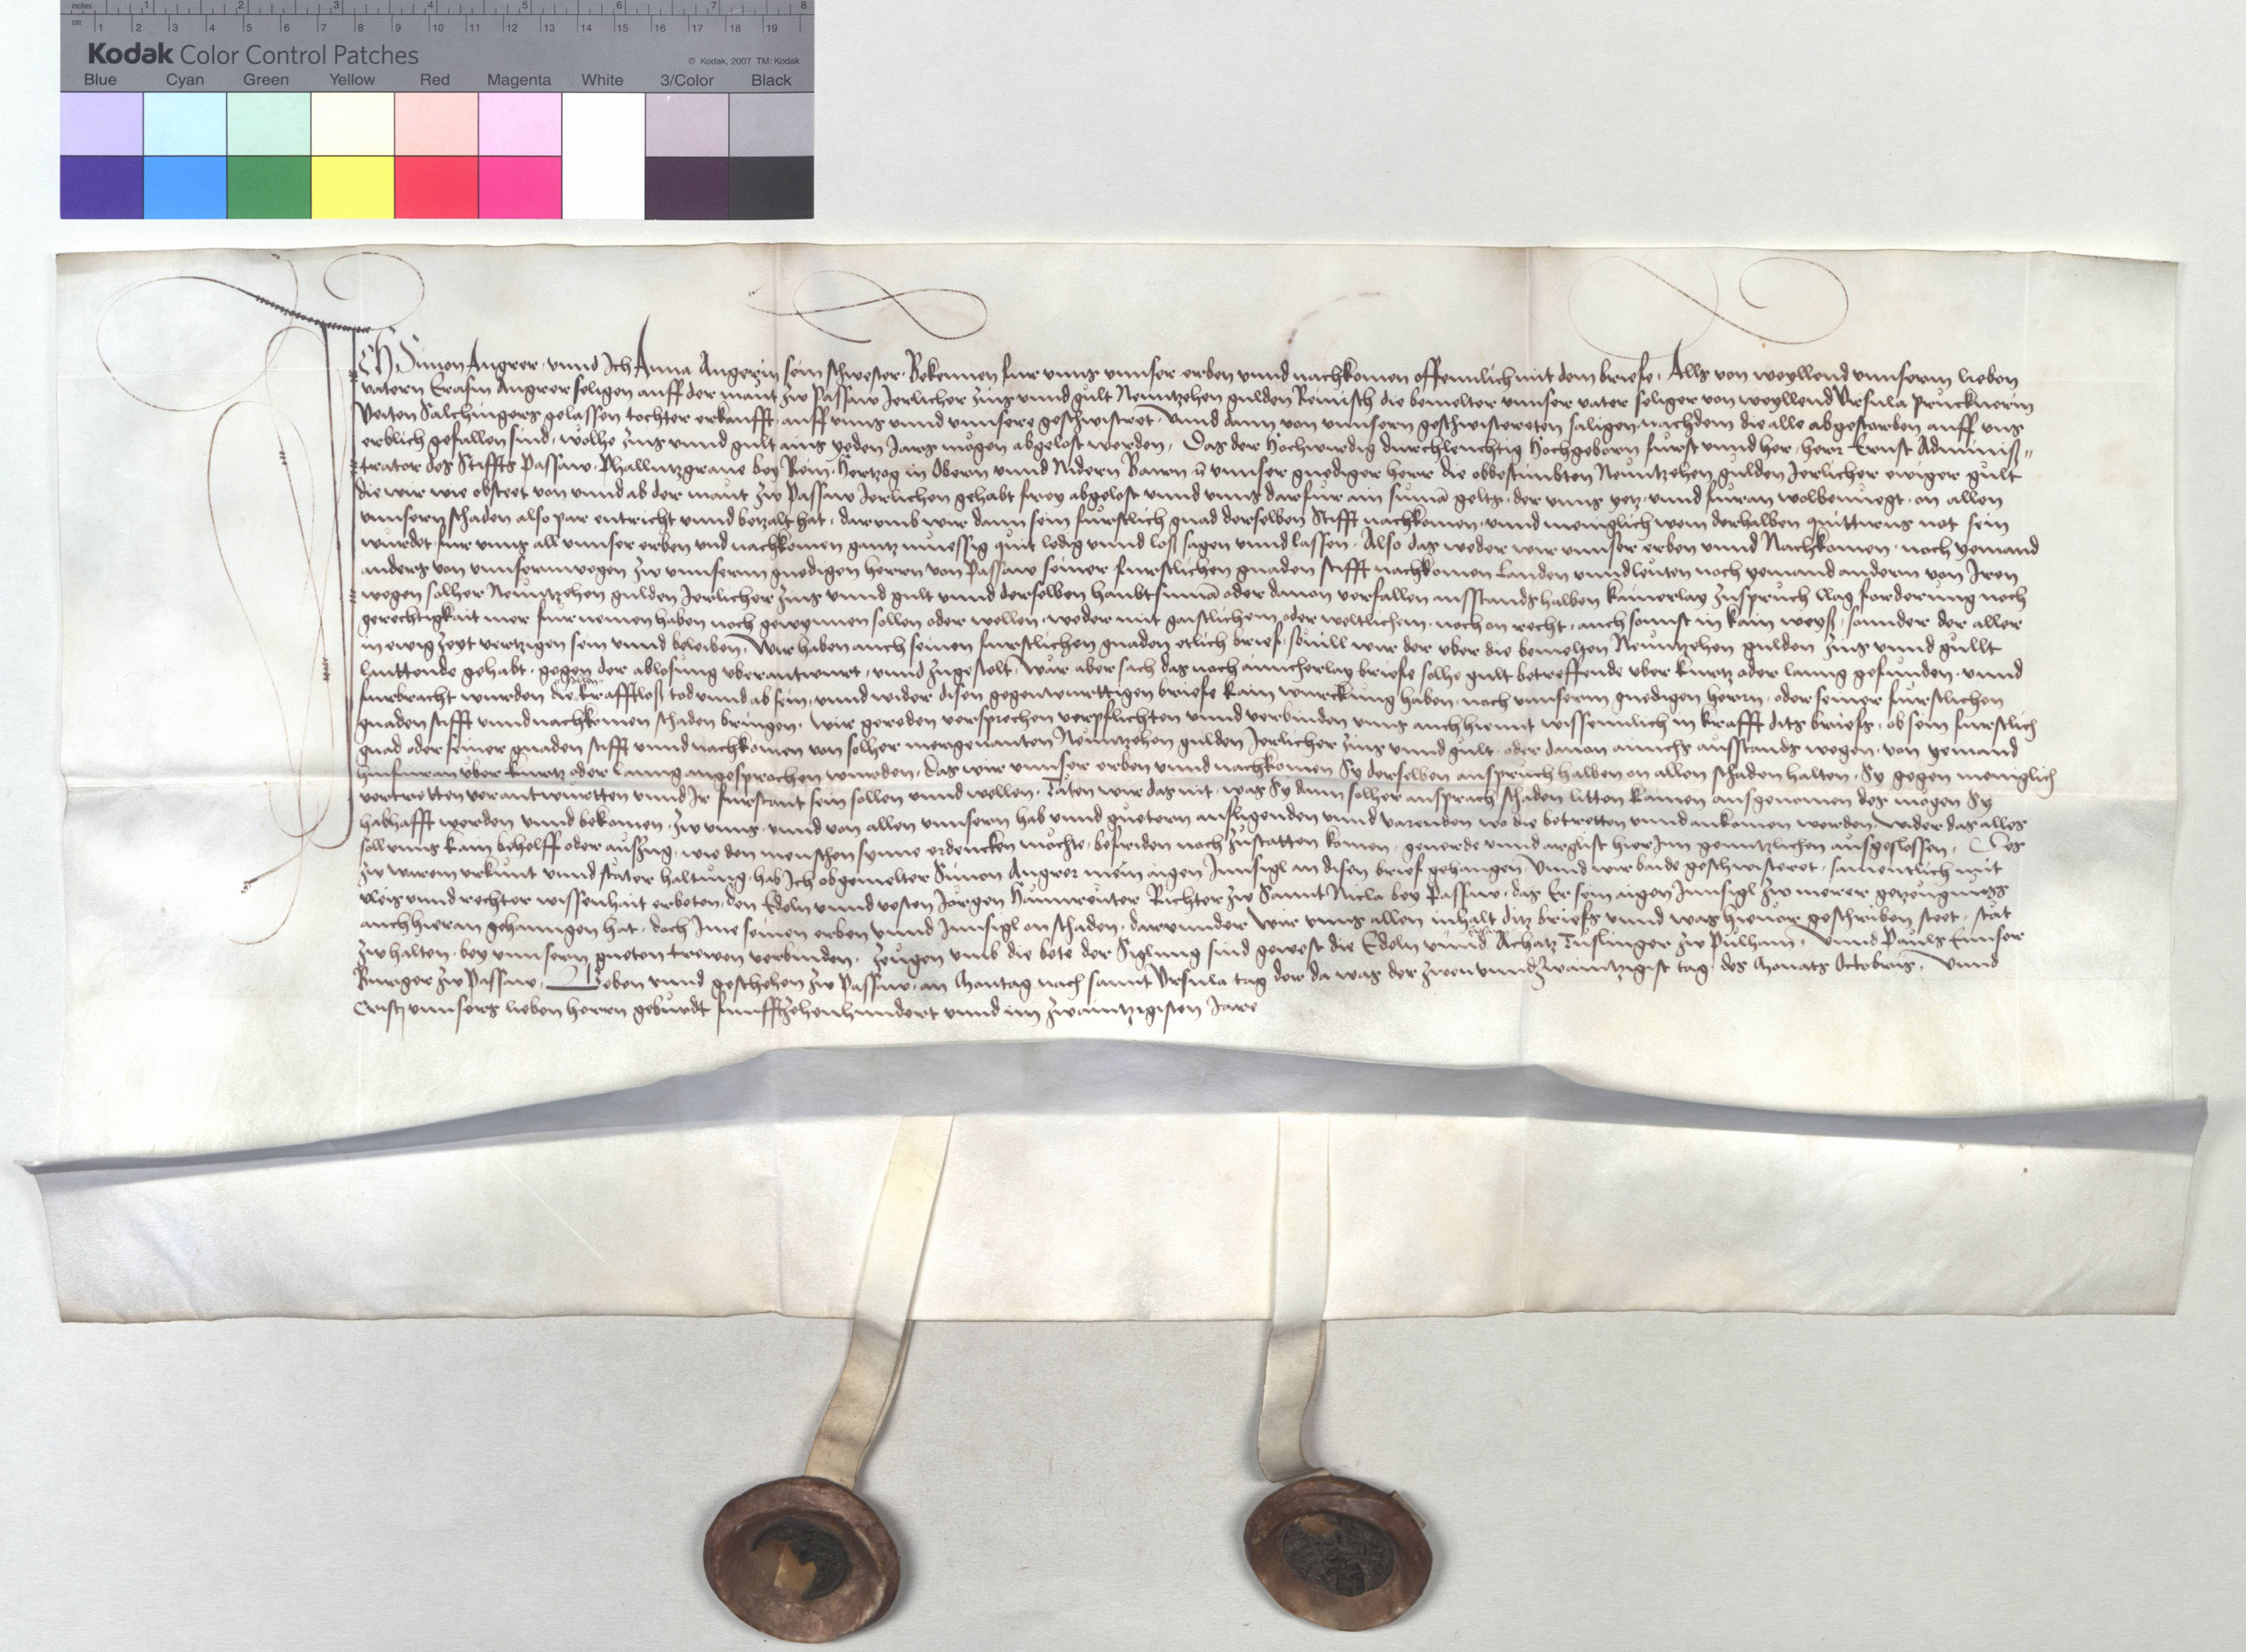 inches 1 2 3 4 5 6 7 8
cm 1 2 3 4 5 6 7 8 9 10 11 12 13 14 15 16 17 18 19
Kodak Color Control Patches © Kodak, 2007 TM: Kodak
Blue Cyan Green Yellow Red Magenta White 3/Color Black
ICH Simon Angrer, vnnd Ich Anna Angerin sein schwester. Bekennen fur vnns vnnser erben vnnd nachkomen offennlich mit dem briefe. Alls von weyllend vnnserm lieben
vatern Erasm Angrer seligen auff der maut zw Passaw Jerlicher zins vnnd gult Neuntzehen gulden Reinisch die bemelter vnnser vater seliger von weyllend Vrsula Prucknerin
Veiten Salchingers gelassen tochter erkaufft, auff vnns vnnd vnnsere geschwistret. Vnnd dann von vnnsern geschwistereten säligen, nachdem die alle abgestorben auff vns
erblich gefallen sind, wolhe zins vnnd gult ains yeden Jars mögen abgelöst werden. Das der Hochwurdig durchleuchtig Hochgeborn furst vnnd her, herr Ernst Adminis-
trator des Stiffts Passaw, Phallnntzgraue bey Rein, Hertzog in Obern vnnd Nidern Bairn etc vnnser gnediger herr die obbestimbten Neuntzehen gulden Jerlicher ewiger gult
die wir wie obsteet von vnnd ab der maut zw Passaw Jerlichen gehabt frey abgelost vnnd vnns darfur ain suma gelts, der vnns yetz vnnd furan wolbenuegt, on allen
vnnsern schaden also par entricht vnnd betzalt hat, darumb wir dann sein furstlich gnad derselben Stifft nachkomen, vnnd meniglich wem derhalben quittirns not sein
wurdet, fur vnns all vnnser erben vnd nachkomen gantz muessig quit ledig vnnd loß sagen vnnd lassen. Also das weder wir vnnser erben vnnd Nachkomen, noch yemand
anders von vnnsernwegen zw vnnserm gnedigen herrn von Passaw seiner furstlichen gnaden stifft nachkomen Landen vnnd leuten noch yemand anderm von Iren
wegen solher Neuntzehen gulden Jerlicher zins vnnd gult vnnd derselben haubtsuma oder dauon verfallen ausstands halben kainerlay zuspruch clag forderung noch
gerechtigkait mer furnemen haben noch gewynnen sollen oder wellen, weder mit gaistlichem oder weltlichem, noch on recht, auch sonnst in kain weyß, sonnder der aller
in ewig zeyt vertzigen sein vnnd beleiben. Wir haben auch seinen furstlichen gnaden etlich brief, souill wir der vber die bemelten Neuntzehen gulden zins vnnd gullt
lauttende gehabt, gegen der ablosung vberantwurt, vnnd zugestelt, wär aber sach das noch ainicherlay briefe solhe gult betreffende vber kurtz oder lanng gefunden, vnnd
furbracht wurden die krafftloß tod vnnd ab sein, vnnd wider disen gegenwurttigen briefe kain wurckung haben, noch vnnserm gnedigen herrn, oder seiner furstlichen
gnaden stifft vnnd nachkomen schaden bringen. Wir gereden versprechen verpflichten vnnd verbinden vnns auch hiemit wissennlich in krafft dits briefs, ob sein furstlich
gnad oder seiner gnaden stifft vnnd nachkomen von solher mergenanten Neuntzehen gulden Jerlicher zins vnnd gult, oder dauon ainichs ausstands wegen, von yemand
hinfuran vber kurtz oder lanng angesprochen wurden, das wir vnnser erben vnnd nachkomen Sy derselben anspruch halben on allen schaden halten, Sy gegen meniglich
vertretten verantwurtten vnnd Ir furstant sein sollen vnnd wellen. Täten wir das nit, was Sy dann solher ansprach schaden litten kainen ausgenomen des mogen Sy
habhafft werden vnnd bekomen, zw vnns, vnnd von allen vnnsern hab vnnd guetern aufligenden vnnd varenden wo die betretten vnnd ankomen werden, wider das alles
soll vnns kain behelff oder auszug, wie den menschen synne erdencken mochte, befriden noch zustatten komen, geuerde vnnd arglist hierInn genntzlichen ausgeslossen. Des
zw warem vrkunt vnnd stäter haltung, hab Ich obgemelter Simon Angrer mein aigen Innsigl an disen brief gehangen. Vnnd wir baide geschwisteret, samentlich mit
vleis vnnd rechter wissenhait erbeten, den Edeln vnnd vesten Jorgen Hannreuter Richter zw Sannt Nicla bey Passaw, das Er sein aigen Innsigl zw merer getzeugnuss
auch hieran gehanngen hat, doch Ime seinen erben vnnd Innsigl on schaden, darunder wir vnns allen inhalt ditz briefs vnnd was hieuor geschriben steet, stät
zw halten, bey vnnsern gueten trewen verbinden. Zeugen vmb die bete der Siglung sind gewest die Edeln vnnd Achatz Tuslinger zw Pulham, Vnnd Pauls Ennser
Burger zw Passaw. Geben vnnd geschehen zw Passaw, an Montag nach sannt Vrsula tag der da was der zwen vnnd zwaintzigist tag des Monats Octobris, Vnnd
Cristj vnnsers lieben herrn geburdt funfftzehenhundert vnnd im zwaintzigisten Jare